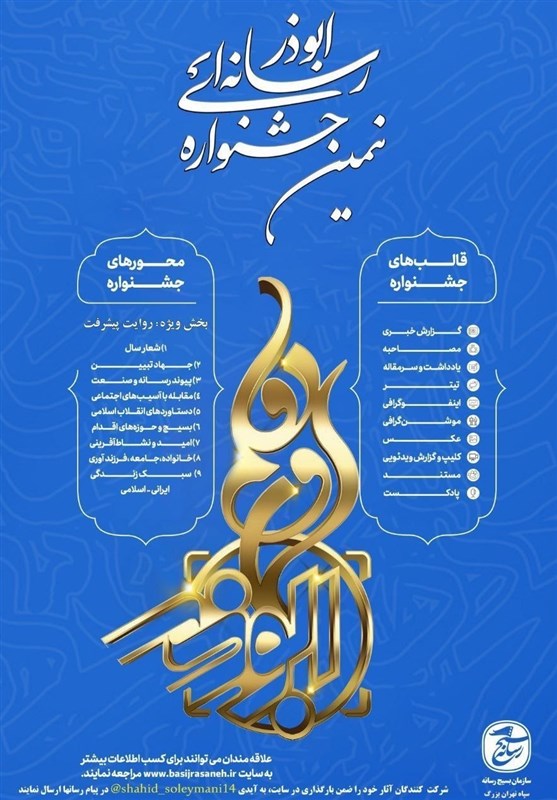 نهمین جشنواره
رسانه‌ای
ابوذر
قالب‌های
جشنواره
گزارش خبری
مصاحبه
یادداشت و سرمقاله
تیتر
اینفوگرافی
موشن‌گرافی
عکس
کلیپ و گزارش ویدئویی
مستند
پادکست
محورهای
جشنواره
بخش ویژه: روایت پیشرفت
۱) شعار سال
۲) جهاد تبیین
۳) پیوند رسانه و صنعت
۴) مقابله با آسیب‌های اجتماعی
۵) دستاوردهای انقلاب اسلامی
۶) بسیج و حوزه‌های اقدام
۷) امید و نشاط‌آفرینی
۸) خانواده، جامعه، فرزندآوری
۹) سبک زندگی
ایرانی - اسلامی
ابوذر
علاقه‌مندان می‌توانند برای کسب اطلاعات بیشتر
به سایت www.basijrasaneh.ir مراجعه نمایند.
شرکت کنندگان آثار خود را ضمن بارگذاری در سایت، به آیدی @shahid_soleymani14 در پیام رسانها ارسال نمایند
سازمان بسیج رسانه
سپاه تهران بزرگ